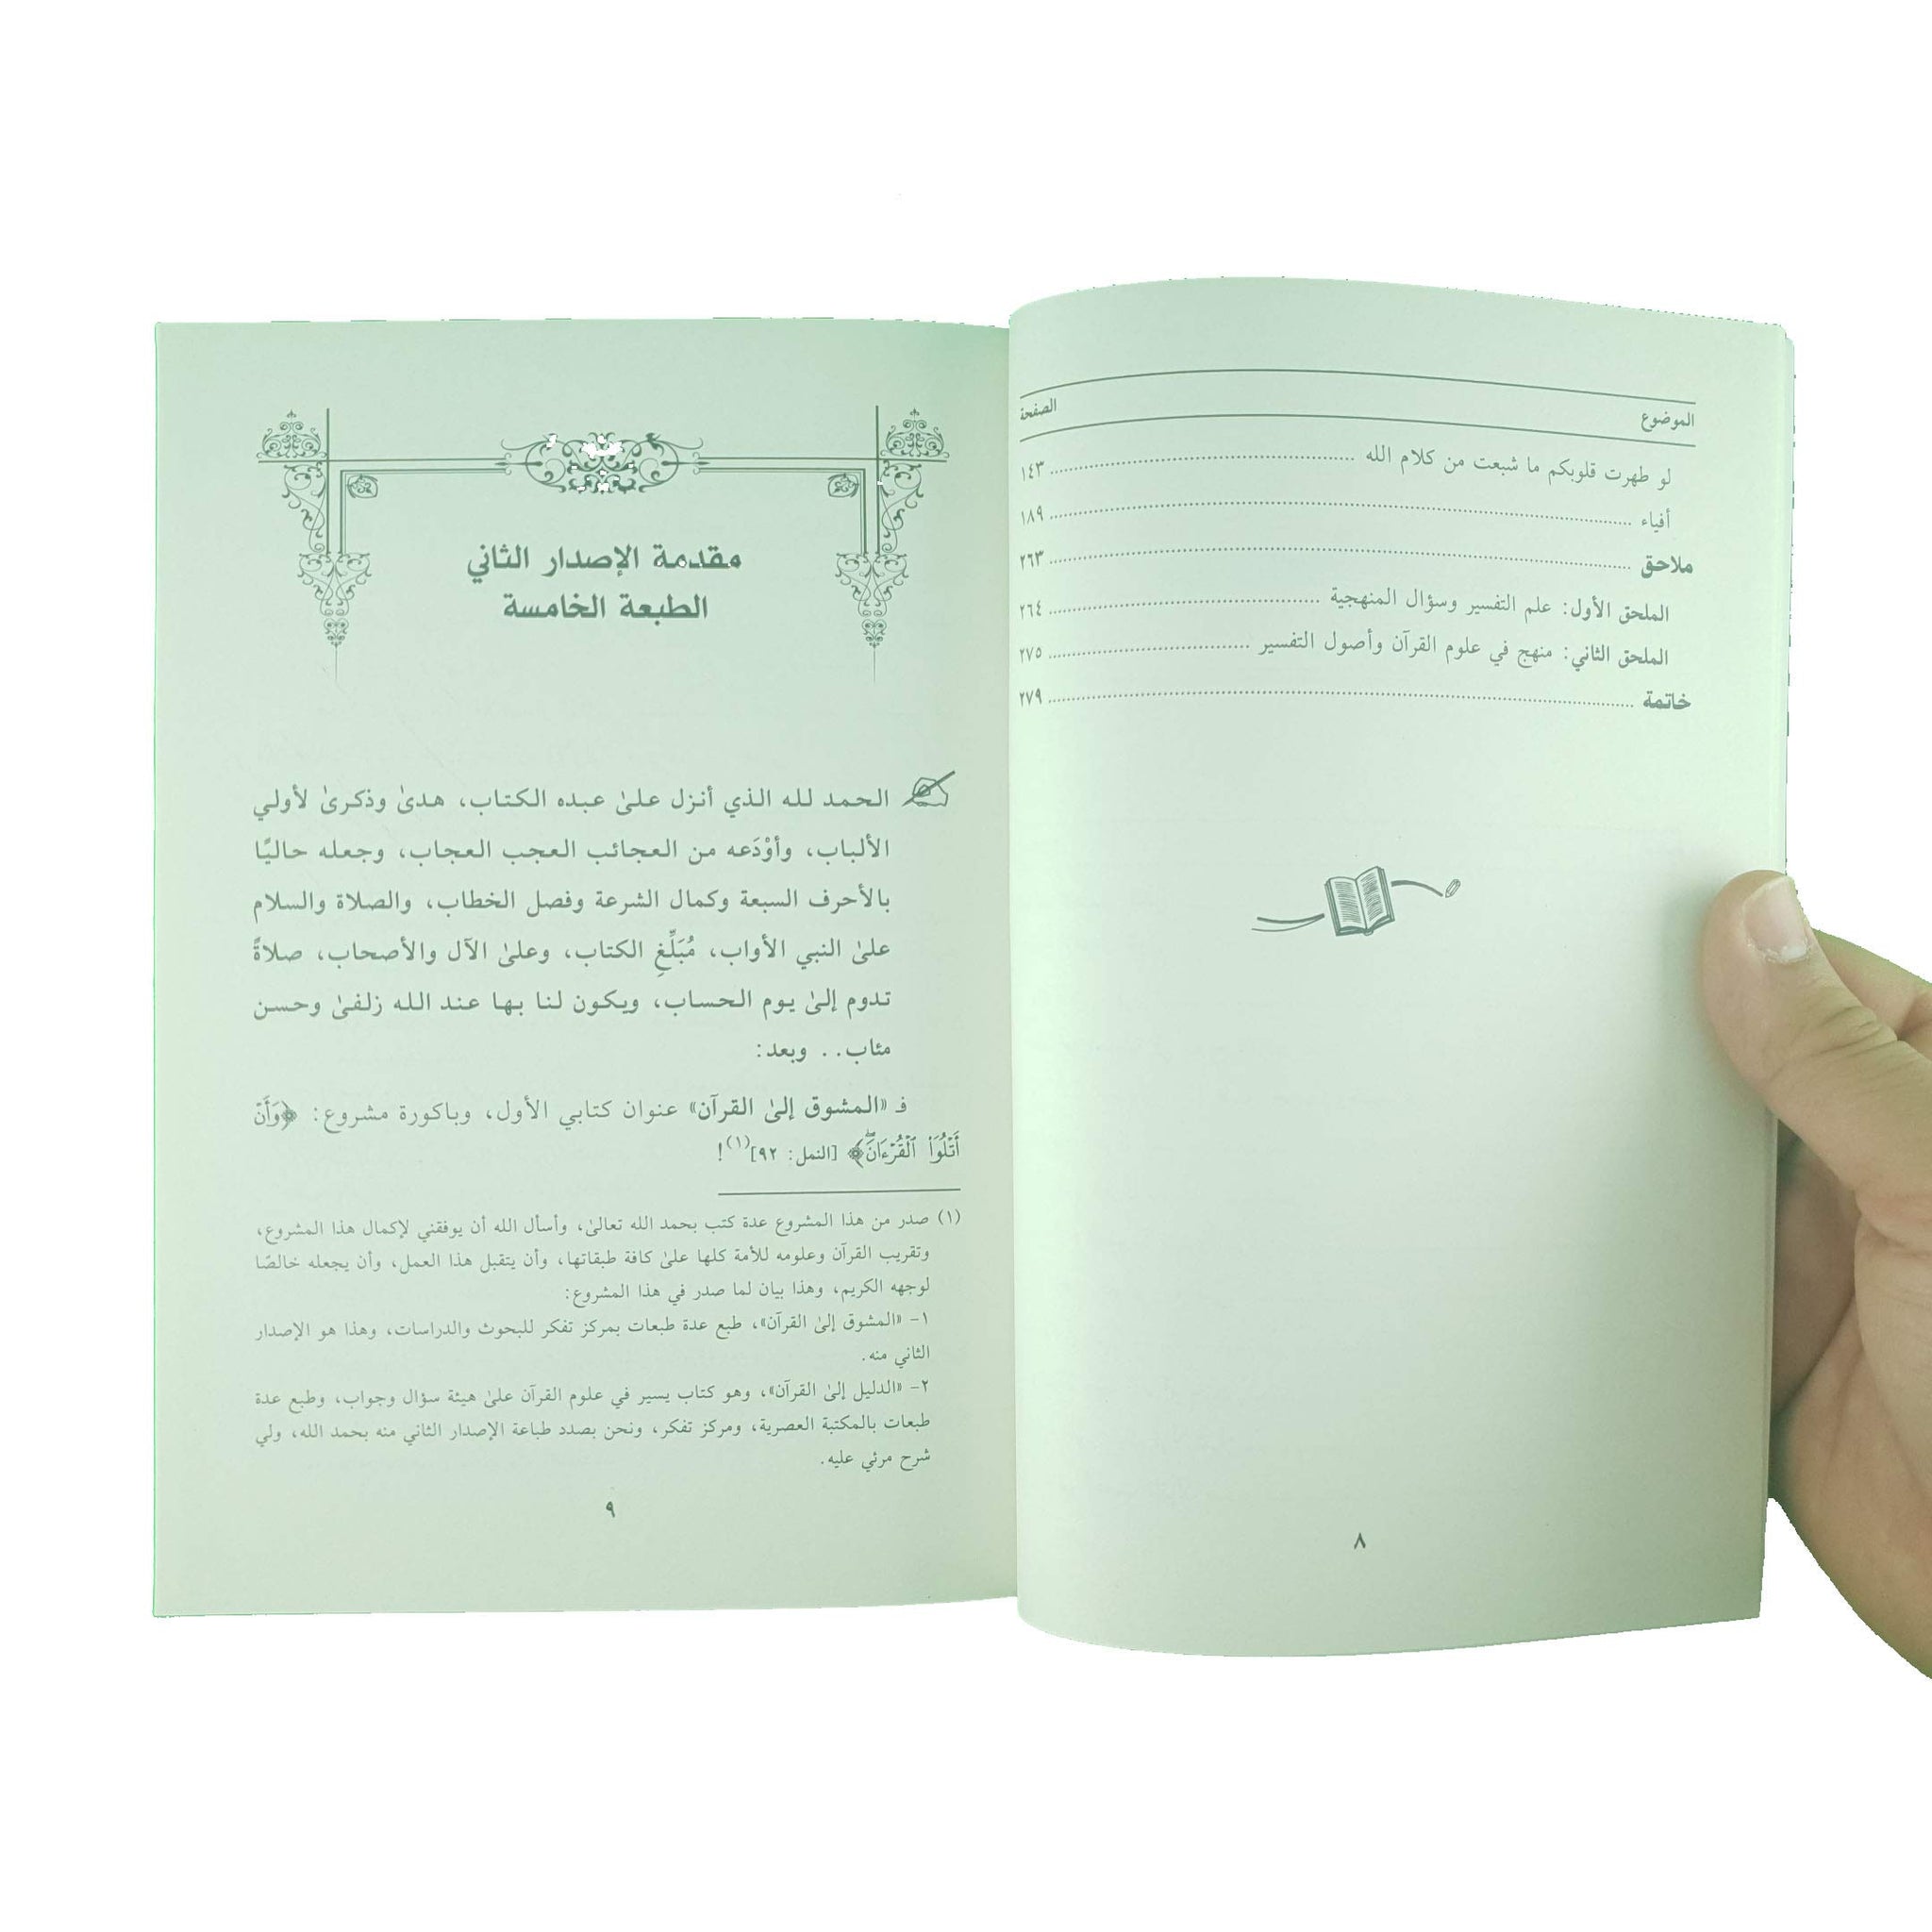 الموضوع الصفحة
لو طهرت قلوبكم ما شبعت من كلام الله ........................ ١٤٣
أفياء ........................ ١٨٩
ملاحق ........................ ٢٦٣
الملحق الأول: علم التفسير وسؤال المنهجية ........................ ٢٦٤
الملحق الثاني: منهج في علوم القرآن وأصول التفسير ........................ ٢٧٥
خاتمة ........................ ٢٧٩
٨
مقدمة الإصدار الثاني
الطبعة الخامسة
الحمد لله الذي أنزل علىٰ عبده الكتاب، هدىٰ وذكرىٰ لأولي
الألباب، وأوْدَعه من العجائب العجب العجاب، وجعله حاليًا
بالأحرف السبعة وكمال الشرعة وفصل الخطاب، والصلاة والسلام
علىٰ النبي الأواب، مُبَلِّغِ الكتاب، وعلىٰ الآل والأصحاب، صلاةً
تدوم إلىٰ يوم الحساب، ويكون لنا بها عند الله زلفىٰ وحسن
مئاب.. وبعد:
فـ «المشوق إلىٰ القرآن» عنوان كتابي الأول، وباكورة مشروع: ﴿وَأَنْ
أَتْلُوَا۟ ٱلْقُرْءَانَۖ﴾ [النمل: ٩٢](١)!
(١) صدر من هذا المشروع عدة كتب بحمد الله تعالىٰ، وأسأل الله أن يوفقني لإكمال هذا المشروع،
وتقريب القرآن وعلومه للأمة كلها علىٰ كافة طبقاتها، وأن يتقبل هذا العمل، وأن يجعله خالصًا
لوجهه الكريم، وهذا بيان لما صدر في هذا المشروع:
١- «المشوق إلىٰ القرآن»، طبع عدة طبعات بمركز تفكر للبحوث والدراسات، وهذا هو الإصدار
الثاني منه.
٢- «الدليل إلىٰ القرآن»، وهو كتاب يسير في علوم القرآن علىٰ هيئة سؤال وجواب، وطبع عدة
طبعات بالمكتبة العصرية، ومركز تفكر، ونحن بصدد طباعة الإصدار الثاني منه بحمد الله، ولي
شرح مرئي عليه.
٩